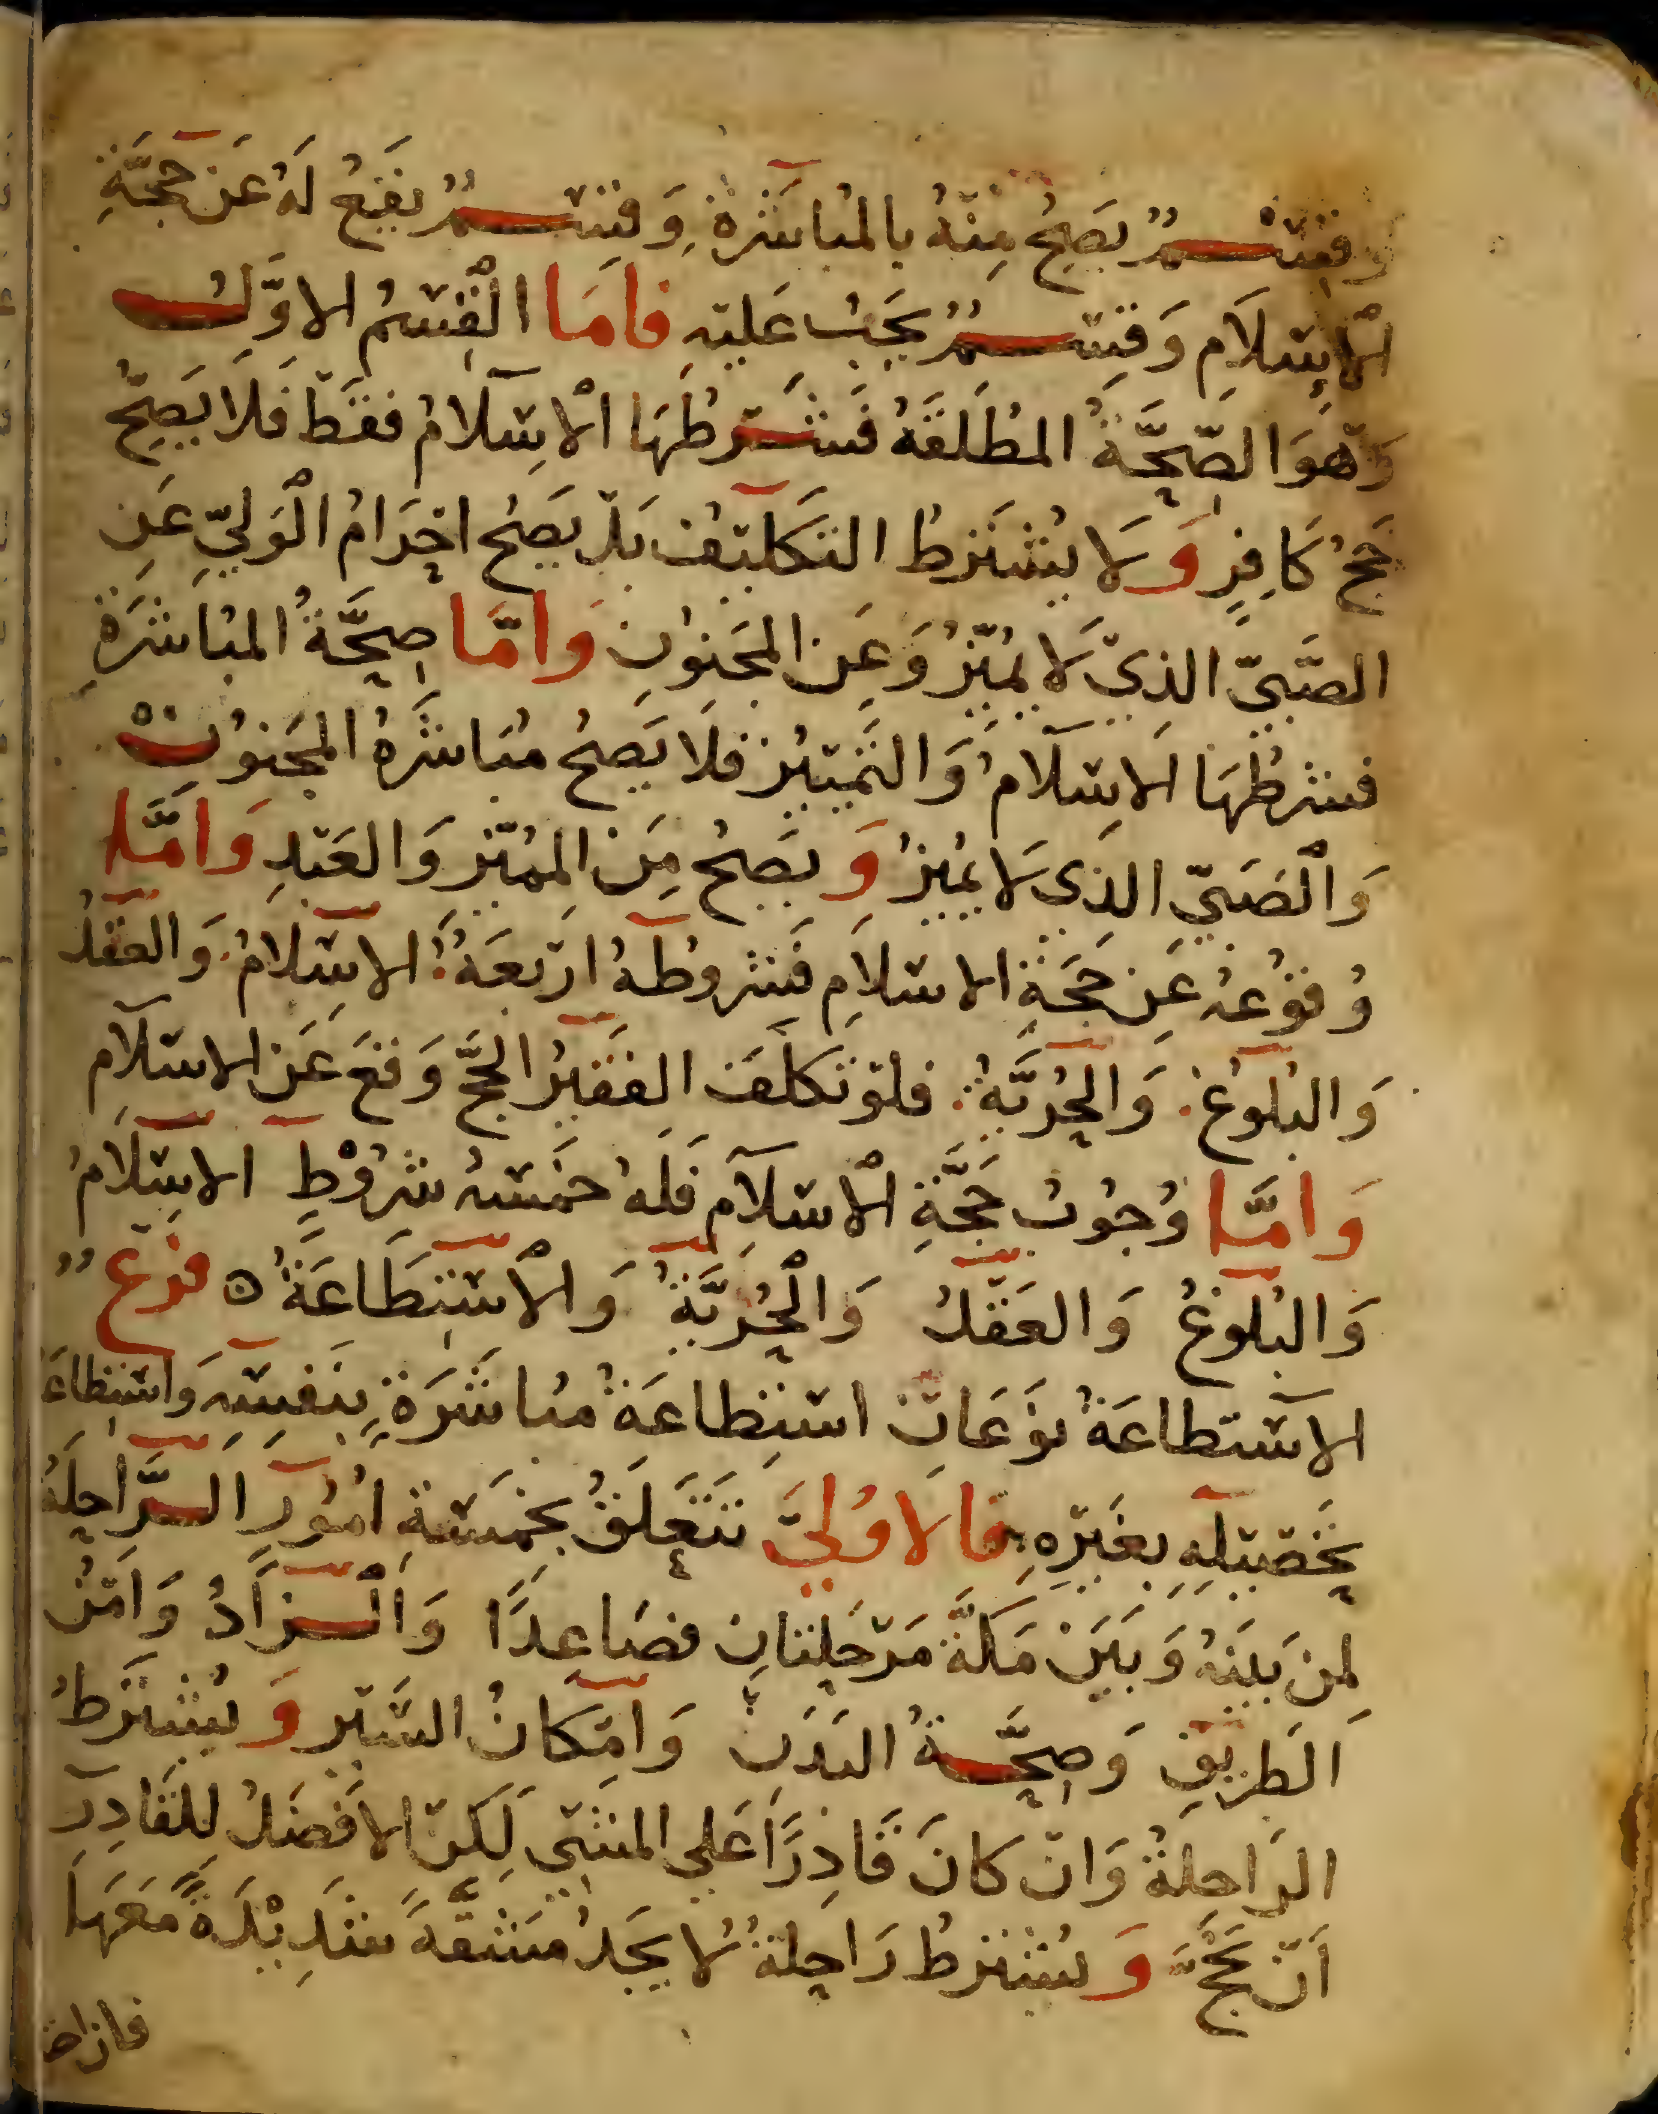 وقسم يصح منه بالمباشرة وقسم يقع له عن حجة
الإسلام وقسم يجب عليه فاما القسم الاول
وهو الصحة المطلقة فشرطها الإسلام فقط فلا يصح
حج كافر ولا يشترط التكليف بل يصح احرام الولي عن
الصبي الذي لا يميز وعن المجنون واما صحة المباشرة
فشرطها الاسلام والتمييز فلا يصح مباشرة المجنون
والصبي الذي لا يميز ويصح من المميز والعبد واما
وقوعه عن حجة الاسلام فشروطه اربعة الاسلام والعقل
والبلوغ والحرية فلو تكلف الفقير الحج وقع عن الاسلام
واما وجوب حجة الاسلام فله خمسه شروط الاسلام
والبلوغ والعقل والحرية والاستطاعة ه فرع
الاستطاعة نوعان استطاعة مباشرة بنفسه واستطاعة
تحصيله بغيره فالاولى تتعلق بخمسة امور الراحلة
لمن بينه وبين مكة مرحلتان فصاعدا والزاد وامن
الطريق وصحة البدن وامكان السير ويشترط
الراحلة وان كان قادرا على المشي لكن الافضل للقادر
أن يحج ويشترط راحلة لا يجد مشقة شديدة معها